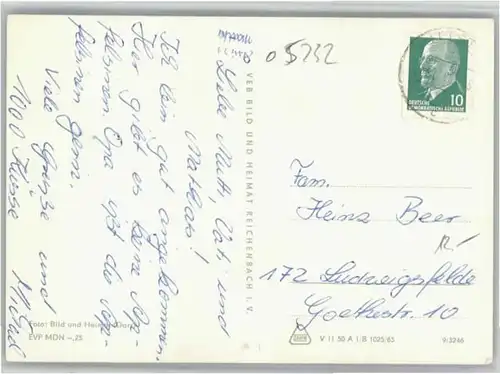 Liebe Mutti, Vati und
Mathias!
Ich bin gut angekommen.
Hier gibt es keine Ap-
felsinen. Opa ißt die Apf-
felsinen gern.
Viele Grüße und
1000 Küsse
05232
VEB BILD UND HEIMAT REICHENBACH I. V.
10
DEUTSCHE
DEMOKRATISCHE REPUBLIK
Fam.
Heinz Beer
172 Ludwigsfelde
Goethestr. 10
Foto: Bild und Heimat
EVP MDN -,25
V 11 50 A 1 B 1025/65
9/3246